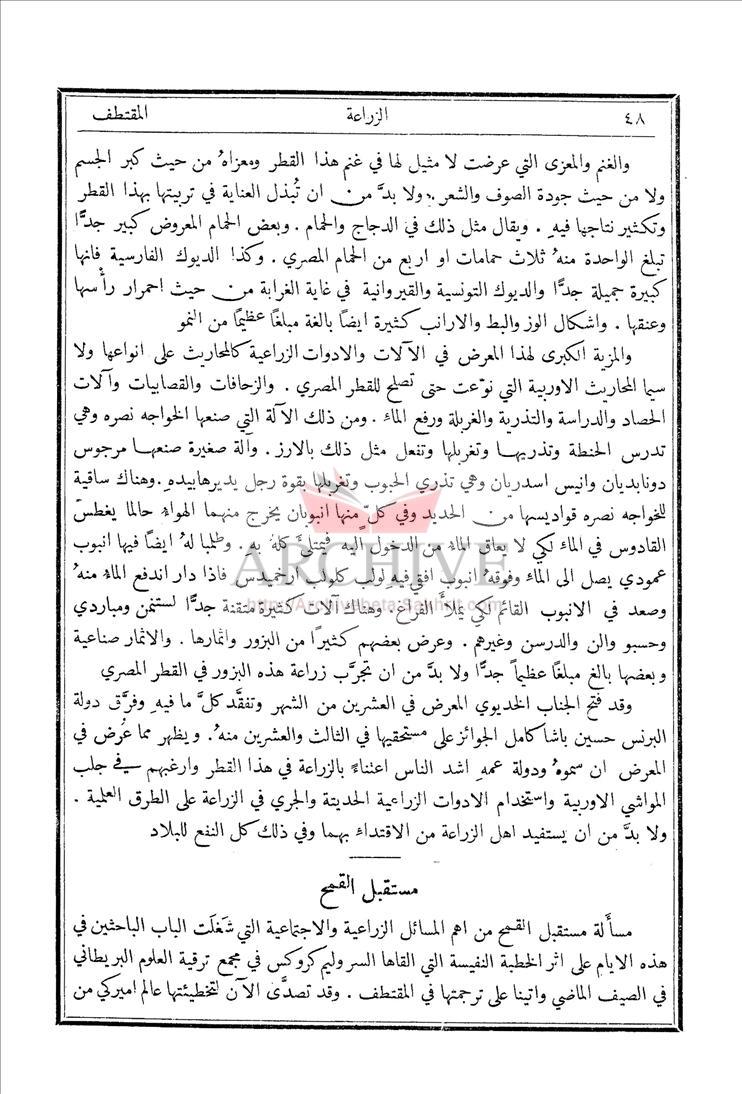 ٤٨ الزراعة المقتطف
والغنم والمعزى التي عرضت لا مثيل لها في غنم هذا القطر ومعزاهُ من حيث كبر الجسم
ولا من حيث جودة الصوف والشعر . ولا بدَّ من ان تُبذل العناية في تربيتها بهذا القطر
وتكثير نتاجها فيهِ . ويقال مثل ذلك في الدجاج والحمام . وبعض الحمام المعروض كبير جدًّا
تبلغ الواحدة منهُ ثلاث حمامات او اربع من الحمام المصري . وكذا الديوك الفارسية فانها
كبيرة جميلة جدًّا والديوك التونسية والقيروانية في غاية الغرابة من حيث احمرار رأسها
وعنقها . واشكال الوز والبط والارانب كثيرة ايضاً بالغة مبلغاً عظيماً من النمو
والمزية الكبرى لهذا المعرض في الآلات والادوات الزراعية كالمحاريث على انواعها ولا
سيما المحاريث الاوربية التي نوّعت حتى تصلح للقطر المصري . والزحافات والقصابيات وآلات
الحصاد والدراسة والتذرية والغربلة ورفع الماء . ومن ذلك الآلة التي صنعها الخواجه نصره وهي
تدرس الحنطة وتذريها وتغربلها وتفعل مثل ذلك بالارز . وآلة صغيرة صنعها مرجوس
دونابديان وانيس اسدريان وهي تذري الحبوب وتغربلها بقوة رجل يديرها بيدهِ . وهناك ساقية
للخواجه نصره قواديسها من الحديد وفي كلٍّ منها انبوبان يخرج منهما الهواء حالما يغطس
القادوس في الماء لكي لا يعاق الماء من الدخول اليهِ فيمتلئ كلهُ بهِ . وطلمبا لهُ ايضاً فيها انبوب
عمودي يصل الى الماء وفوقهُ انبوب افقي فيهِ لولب كلولب ارخميدس فاذا دار اندفع الماء منهُ
وصعد في الانبوب القائم لكي يملأَ الفرغ . وهناك آلات كثيرة متقنة جدًّا لستنمن ومباردي
وحسبو والن والدرسن وغيرهم . وعرض بعضهم كثيرًا من البزور واثمارها . والاثمار صناعية
وبعضها بالغ مبلغاً عظيماً جدًّا ولا بدَّ من ان تجرَّب زراعة هذه البزور في القطر المصري
وقد فتح الجناب الخديوي المعرض في العشرين من الشهر وتفقَّد كلَّ ما فيهِ وفرَّق دولة
البرنس حسين باشا كامل الجوائز على مستحقيها في الثالث والعشرين منهُ . ويظهر مما عُرض في
المعرض ان سموهُ ودولة عمهِ اشد الناس اعتناءً بالزراعة في هذا القطر وارغبهم في جلب
المواشي الاوربية واستخدام الادوات الزراعية الحديثة والجري في الزراعة على الطرق العلمية .
ولا بدَّ من ان يستفيد اهل الزراعة من الاقتداء بهما وفي ذلك كل النفع للبلاد
مستقبل القمح
مسألة مستقبل القمح من اهم المسائل الزراعية والاجتماعية التي شَغلَت الباب الباحثين في
هذه الايام على اثر الخطبة النفيسة التي القاها السر وليم كروكس في مجمع ترقية العلوم البريطاني
في الصيف الماضي واتينا على ترجمتها في المقتطف . وقد تصدَّى الآن لتخطيئتها عالم اميركي من
ARCHIVE
http://Archivebeta.Sakhrit.com